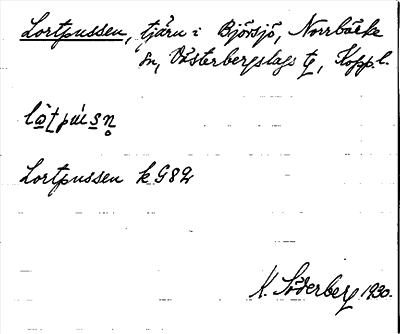 Lortpussen, tjärn i Björsjö, Norrbärke
sn, Västerbergslags tg, Kopp.l.
Lortpussen k G 82
K. Söderberg 1930.